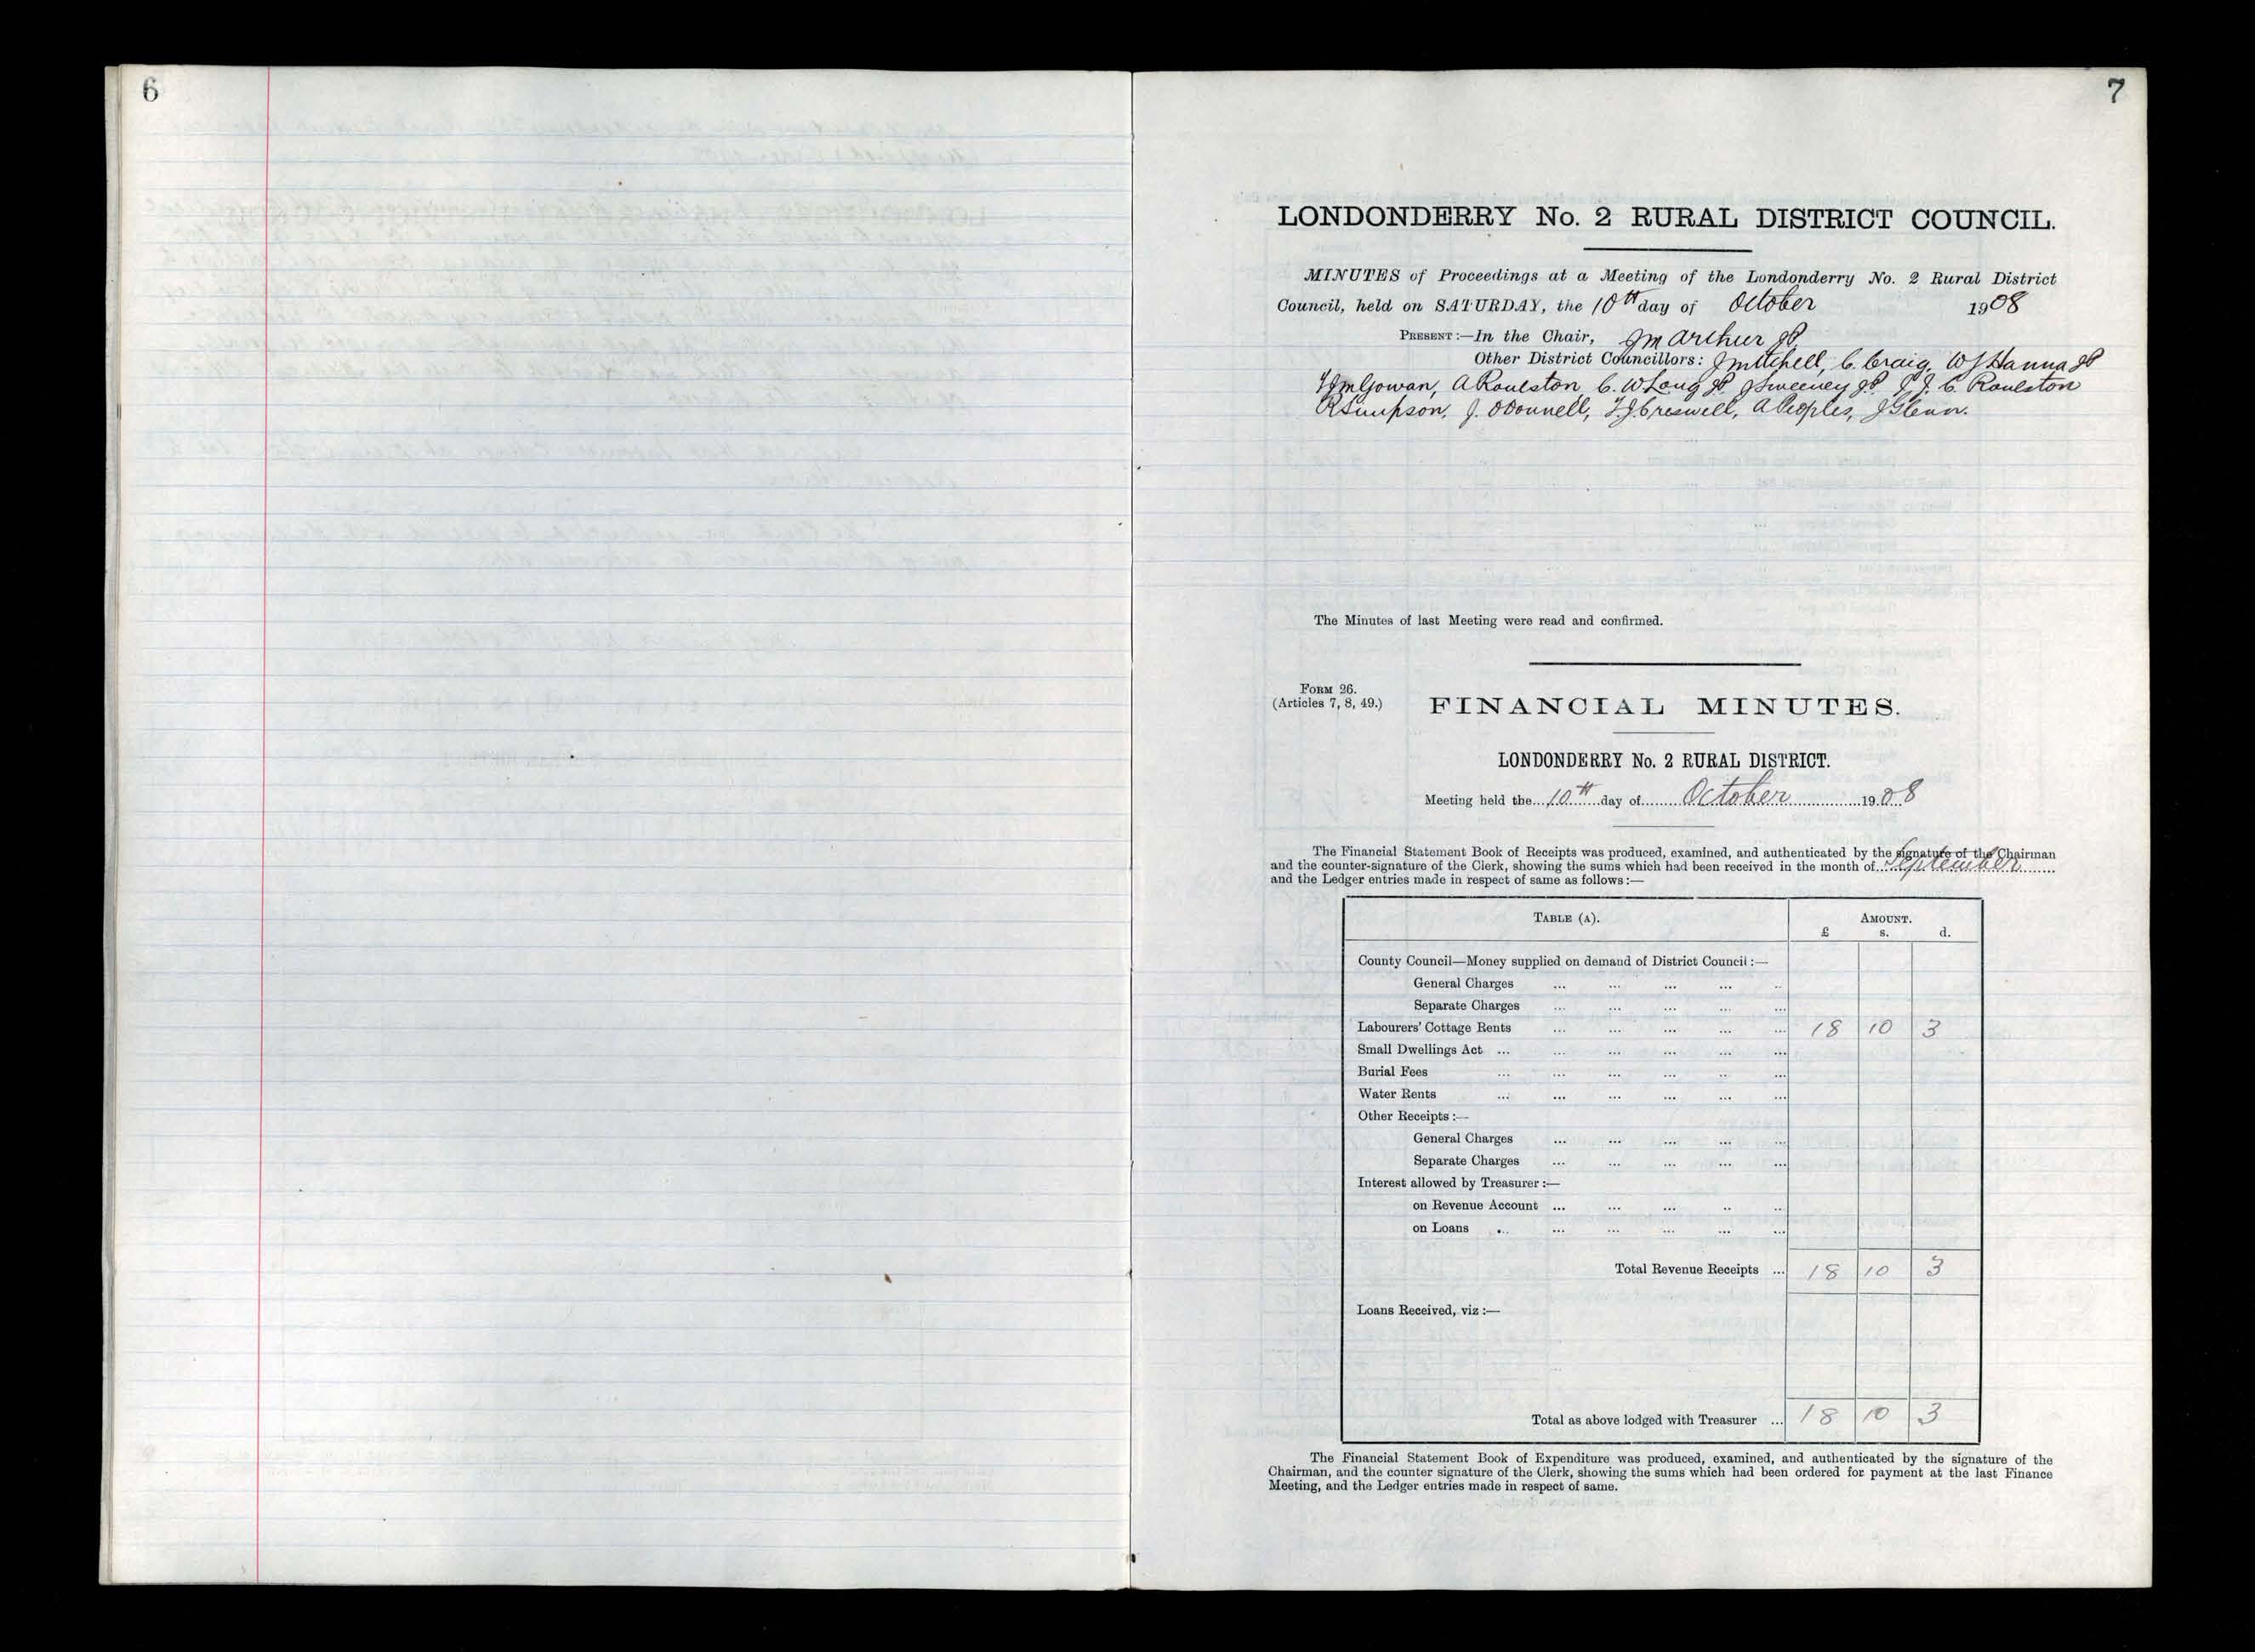 6
7
LONDONDERRY No. 2 RURAL DISTRICT COUNCIL.
MINUTES of Proceedings at a Meeting of the Londonderry No. 2 Rural District
Council, held on SATURDAY, the 10th day of October 1908
PRESENT:—In the Chair, J McArthur JP.
Other District Councillors: J Mitchell, C. Craig, W J Hanna JP
McGowan, A Roulston, C. W Long JP J Sweeney JP, J. J. C. Roulston
R Simpson, J. O'Donnell, T. J. Creswell, A Peoples, J Glenn.
The Minutes of last Meeting were read and confirmed.
FORM 26.
(Articles 7, 8, 49.)
FINANCIAL MINUTES.
LONDONDERRY No. 2 RURAL DISTRICT.
Meeting held the 10th day of October 1908
The Financial Statement Book of Receipts was produced, examined, and authenticated by the signature of the Chairman
and the counter-signature of the Clerk, showing the sums which had been received in the month of September
and the Ledger entries made in respect of same as follows:—
TABLE (A). AMOUNT.
£ s. d.
County Council—Money supplied on demand of District Council:—
General Charges ... ... ... ... ..
Separate Charges ... ... ... ... ...
Labourers' Cottage Rents ... ... ... ... ... 18 10 3
Small Dwellings Act ... ... ... ... ... ...
Burial Fees ... ... ... ... .. ...
Water Rents ... ... ... ... ... ...
Other Receipts:—
General Charges ... ... ... ... ...
Separate Charges ... ... ... ... ...
Interest allowed by Treasurer:—
on Revenue Account ... ... ... .. ..
on Loans ... ... ... ... ... ...
Total Revenue Receipts ... 18 10 3
Loans Received, viz:—
Total as above lodged with Treasurer ... 18 10 3
The Financial Statement Book of Expenditure was produced, examined, and authenticated by the signature of the
Chairman, and the counter signature of the Clerk, showing the sums which had been ordered for payment at the last Finance
Meeting, and the Ledger entries made in respect of same.